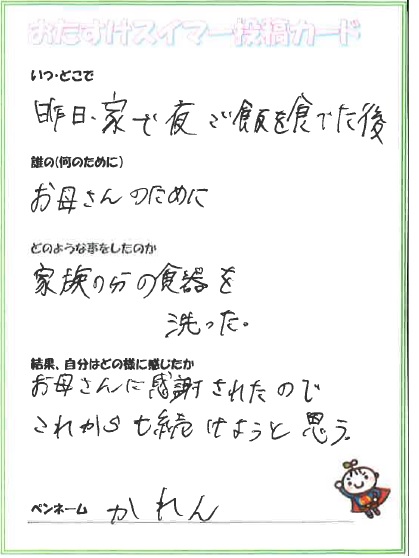 おたすけスイマー投稿カード
いつ・どこで
昨日、家で夜ご飯を食でた後
誰の(何のために)
お母さんのために
どのような事をしたのか
家族の分の食器を
洗った。
結果、自分はどの様に感じたか
お母さんに感謝されたので
これからも続けようと思う。
ペンネーム かれん